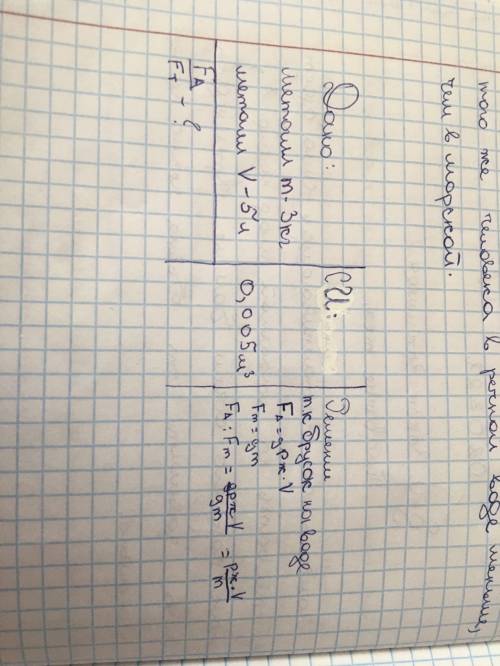 того же человека в речной воде меньше,
чем в морской.
Дано:
металл m - 3кг
металл V - 5л
FА/Fт - ?
СИ:
0,005м³
Решении
т.к брусок на воде
FА = gρж·V
Fт = gm
FА : Fт = gρж·V/gm = ρж·V/m